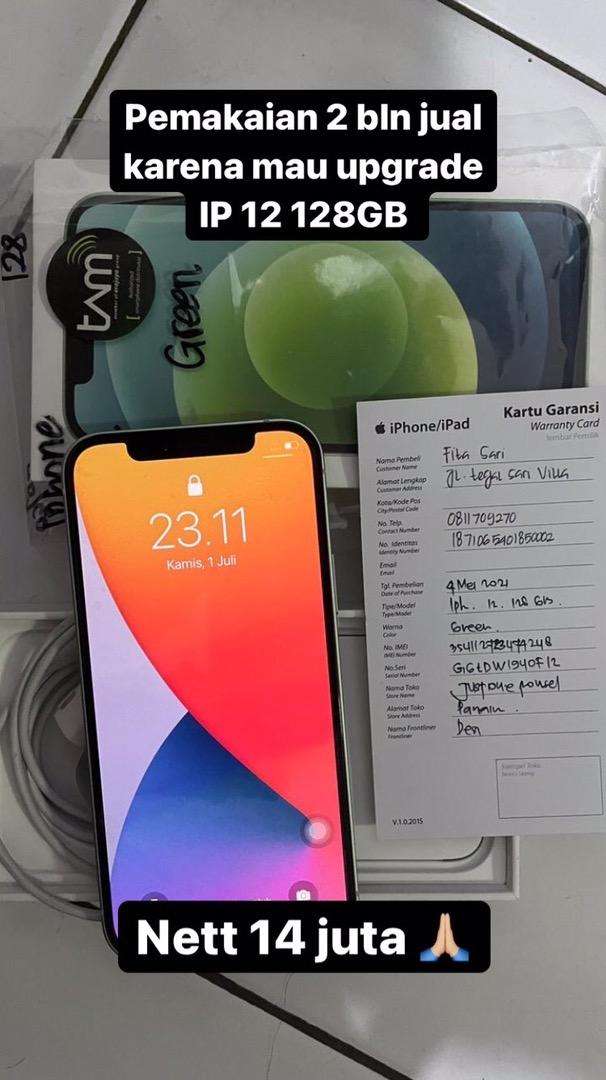 Pemakaian 2 bln jual
karena mau upgrade
IP 12 128GB
128
tam
Green
iPhone
iPhone/iPad
Kartu Garansi
Warranty Card
lembar Pemilik
Nama Pembeli
Customer Name
Fita Sari
Alamat Lengkap
Customer Address
Jl. tegal sari Villa
Kota/Kode Pos
City/Postal Code
No. Telp.
Contact Number
0811709270
No. Identitas
Identity Number
1871065401850002
Email
Email
Tgl. Pembelian
Date of Purchase
4 Mei 2021
Tipe/Model
Type/Model
Iph. 12. 128 Gb.
Warna
Color
Green.
No. IMEI
IMEI Number
No. Seri
Serial Number
Nama Toko
Store Name
Alamat Toko
Store Address
Nama Frontliner
Frontliner
V.1.0.2015
23.11
Kamis, 1 Juli
Nett 14 juta 🙏🏼